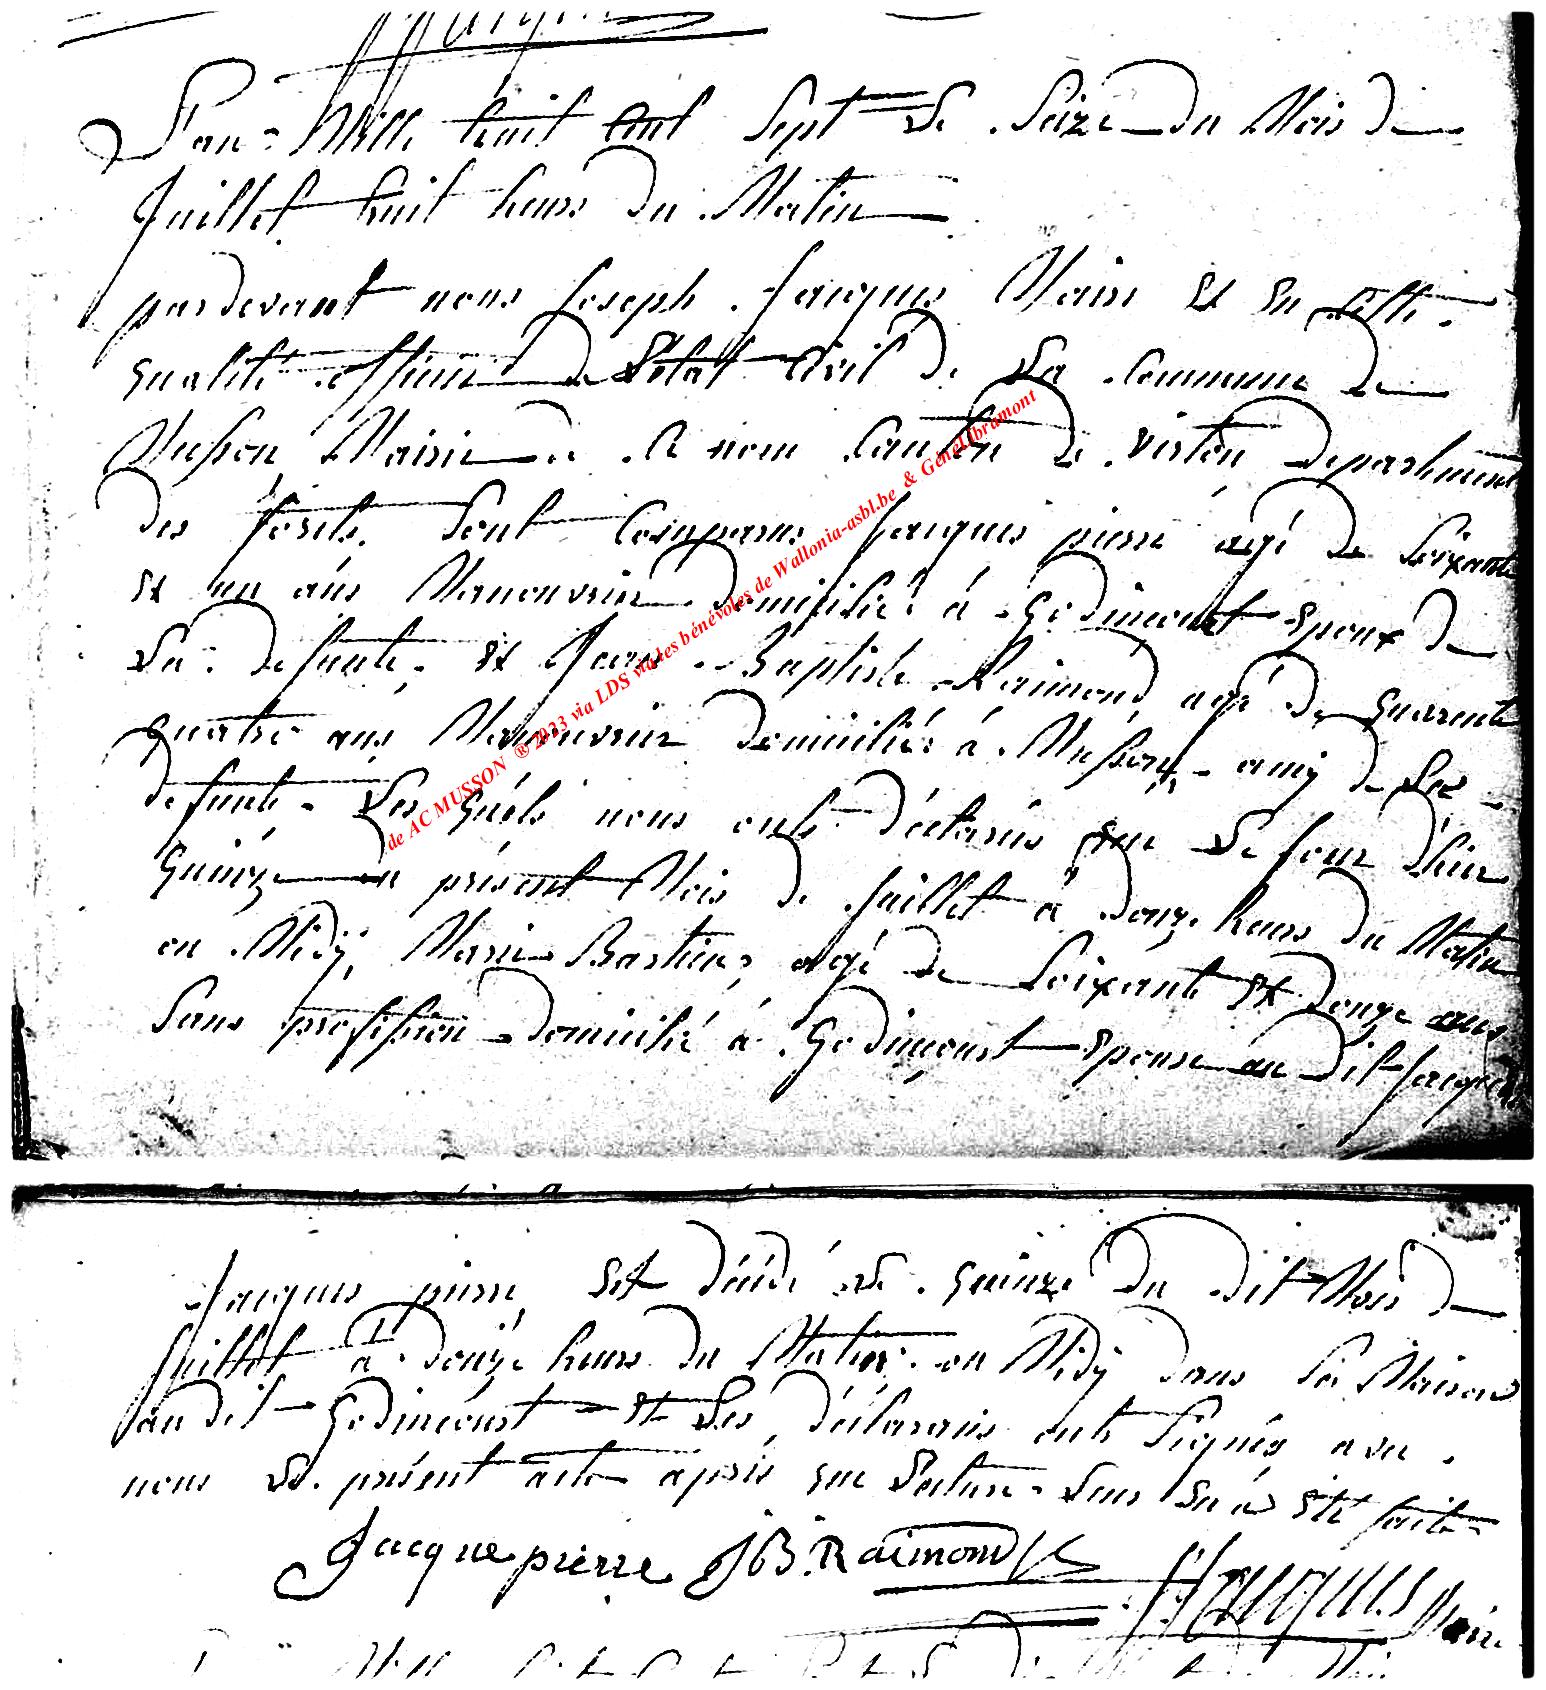 L'an Mille huit Cent Sept Le Seize du Mois de
Juillet huit heurs du Matin
pardevant nous Joseph Jacques Maire et en cette
qualité officier de L'état Civil de La Commune de
Musson Mairie de ce nom Canton de virton departement
des forets. Sont Comparus Jacques pierre agé de Soixante
et un ans Manouvrier domicilié à Godincourt epoux de
La defunte, et Jean Baptiste Raimond agé de quarente
quatre ans Manouvrier domicilié à Musson, amy de La
defunte. Les quels nous onts déclarés que Le Jour d'hier
quinze du présent Mois de Juillet à douze heurs du Matin
ou Midÿ, Marie Bastien, agé de Soixante et douze ans
Sans profession domicilié à Godincourt epouse au dit Jacques
de AC MUSSON ® 2023 via LDS via les bénévoles de Wallonia-asbl.be & GénéaLibramont
Jacques pierre, est décédé Le quinze du dit Mois de
Juillet à douze heurs du Matin ou Midÿ dans Sa Maison
audit Godincourt et Les déclarans onts Signés avec
nous Le présent acte après que Lecture Leur en a été faite
Jacque pierre JB. Raimond Jacques Maire